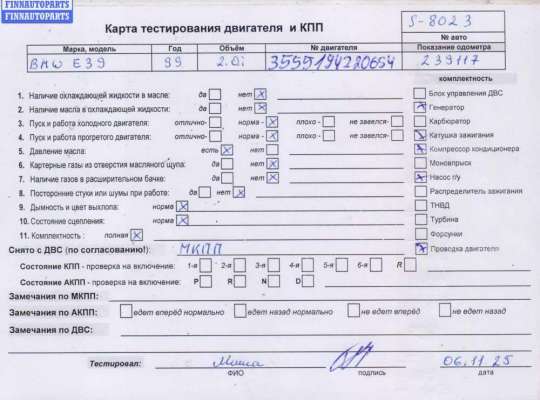 FINNAUTOPARTS
FINNAUTOPARTS
Карта тестирования двигателя и КПП
S-8023
№ авто
Марка, модель Год Объём № двигателя Показание одометра
BMW E39 99 2.0i 3555194220654 239117
комплектность
1. Наличие охлаждающей жидкости в масле: да нет
2. Наличие масла в охлаждающей жидкости: да нет
3. Пуск и работа холодного двигателя: отлично- норма - плохо - не завелся-
4. Пуск и работа прогретого двигателя: отлично- норма - плохо - не завелся-
5. Давление масла: есть нет
6. Картерные газы из отверстия масляного щупа: да нет
7. Наличие газов в расширительном бачке: да нет
8. Посторонние стуки или шумы при работе: да нет
9. Дымность и цвет выхлопа: норма
10. Состояние сцепления: норма
11. Комплектность : полная
Блок управления ДВС
Генератор
Карбюратор
Катушка зажигания
Компрессор кондиционера
Моновпрыск
Насос г/у
Распределитель зажигания
ТНВД
Турбина
Форсунки
Проводка двигателя
Снято с ДВС (по согласованию!): МКПП
Состояние КПП - проверка на включение: 1-я 2-я 3-я 4-я 5-я 6-я R
Состояние АКПП - проверка на включение: P R N D
Замечания по МКПП:
Замечания по АКПП: едет вперёд нормально едет назад нормально не едет вперёд не едет назад
Замечания по ДВС:
Тестировал: Миша 06.11.25
ФИО подпись дата